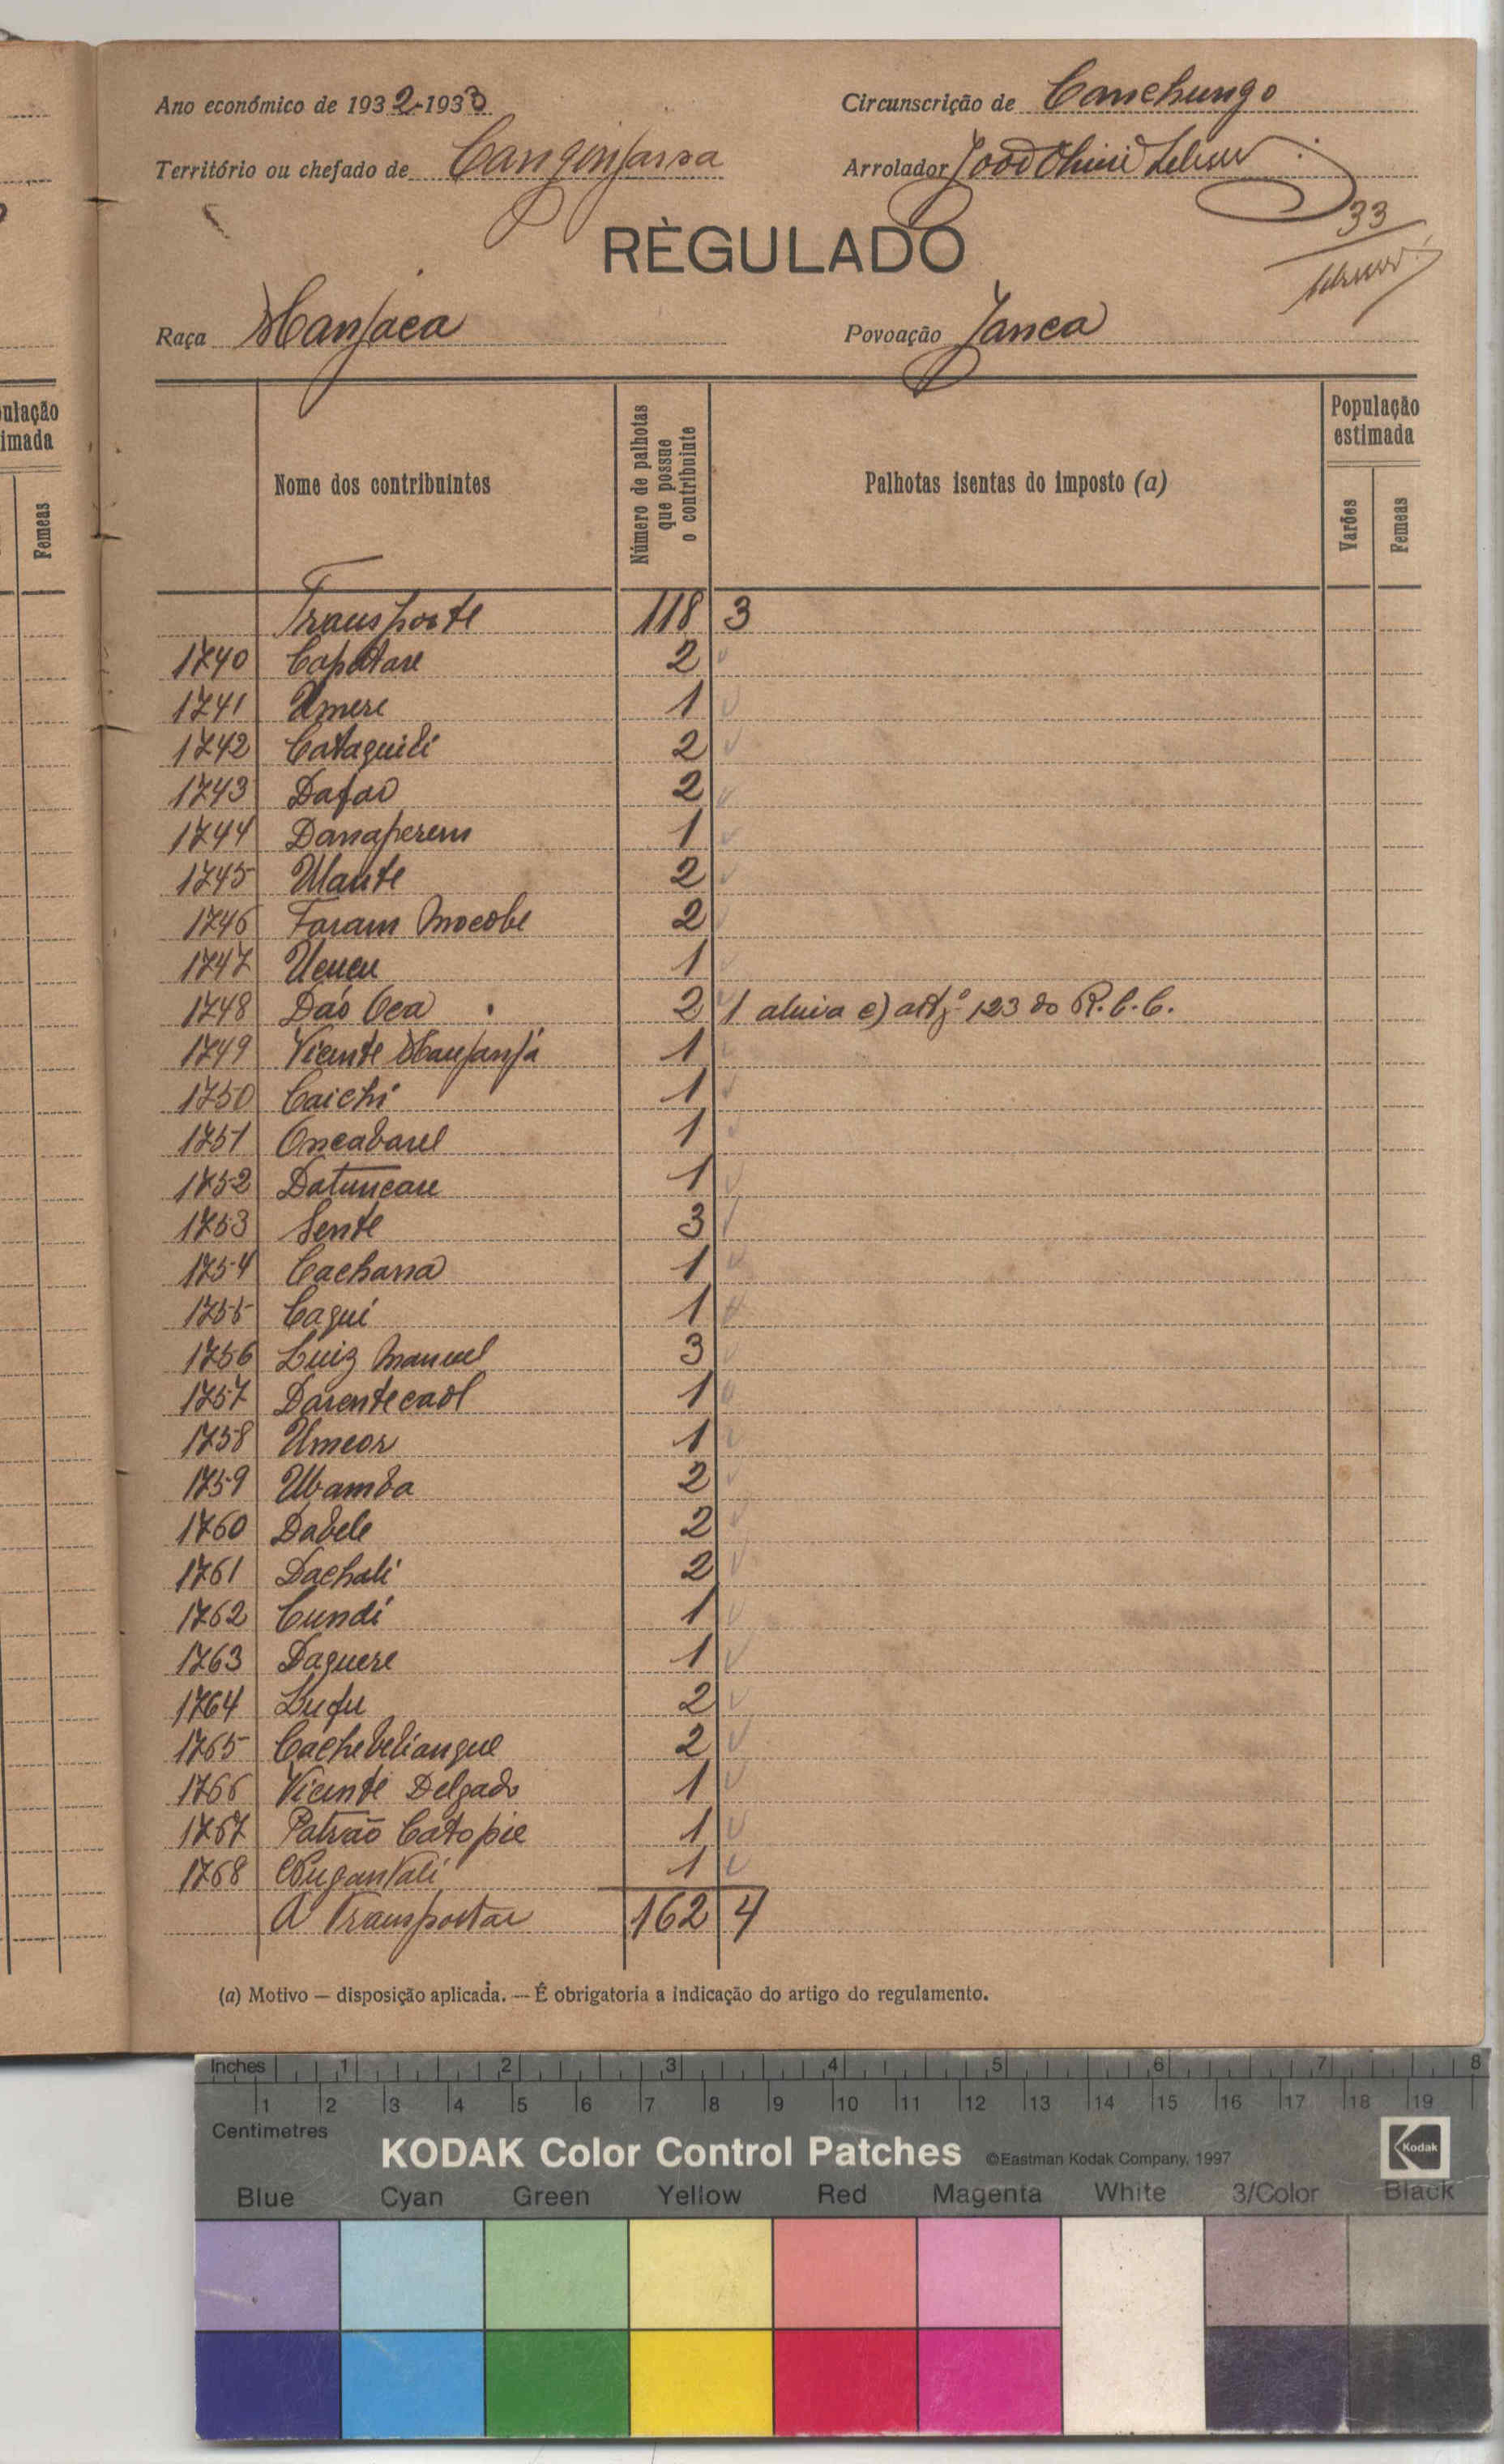 Ano económico de 1932-1933 Circunscrição de Canchungo
Território ou chefado de Arrolador João
33
RÈGULADO
Raça Manjaca Povoação Janca
ulação
imada
Femeas
Nome dos contribuintes
Número de palhotas
que possue
o contribuinte
Palhotas isentas do imposto (a)
População
estimada
Varões
Femeas
Transporte 118 3
1740 Capatare 2
1741 Umere 1
1742 Cataguili 2
1743 Dafao 2
1744 Danaperem 1
1745 Ulante 2
1746 Faram Mocobe 2
1747 Ucucu 1
1748 Daó Oca 2 1 alinia c) artº 123 do R.C.C.
1749 Vicente Manjanjá 1
1750 Caichi 1
1751 Oncabarel 1
1752 Datuncare 1
1753 Sente 3
1754 Cachana 1
1755 Cagui 1
1756 Luiz Manuel 3
1757 Darentecaol 1
1758 Umeor 1
1759 Ubamba 2
1760 Dabele 2
1761 Dachali 2
1762 Cundi 1
1763 Daguere 1
1764 Dufu 2
1765 Cachebeliangue 2
1766 Vicente Delgado 1
1767 Patrão Catopie 1
1768 1
A Transportar 162 4
(a) Motivo — disposição aplicada. — É obrigatoria a indicação do artigo do regulamento.
Inches 1 2 3 4 5 6 7 8
1 2 3 4 5 6 7 8 9 10 11 12 13 14 15 16 17 18 19
Centimetres
KODAK Color Control Patches ©Eastman Kodak Company, 1997 Kodak
Blue Cyan Green Yellow Red Magenta White 3/Color Black